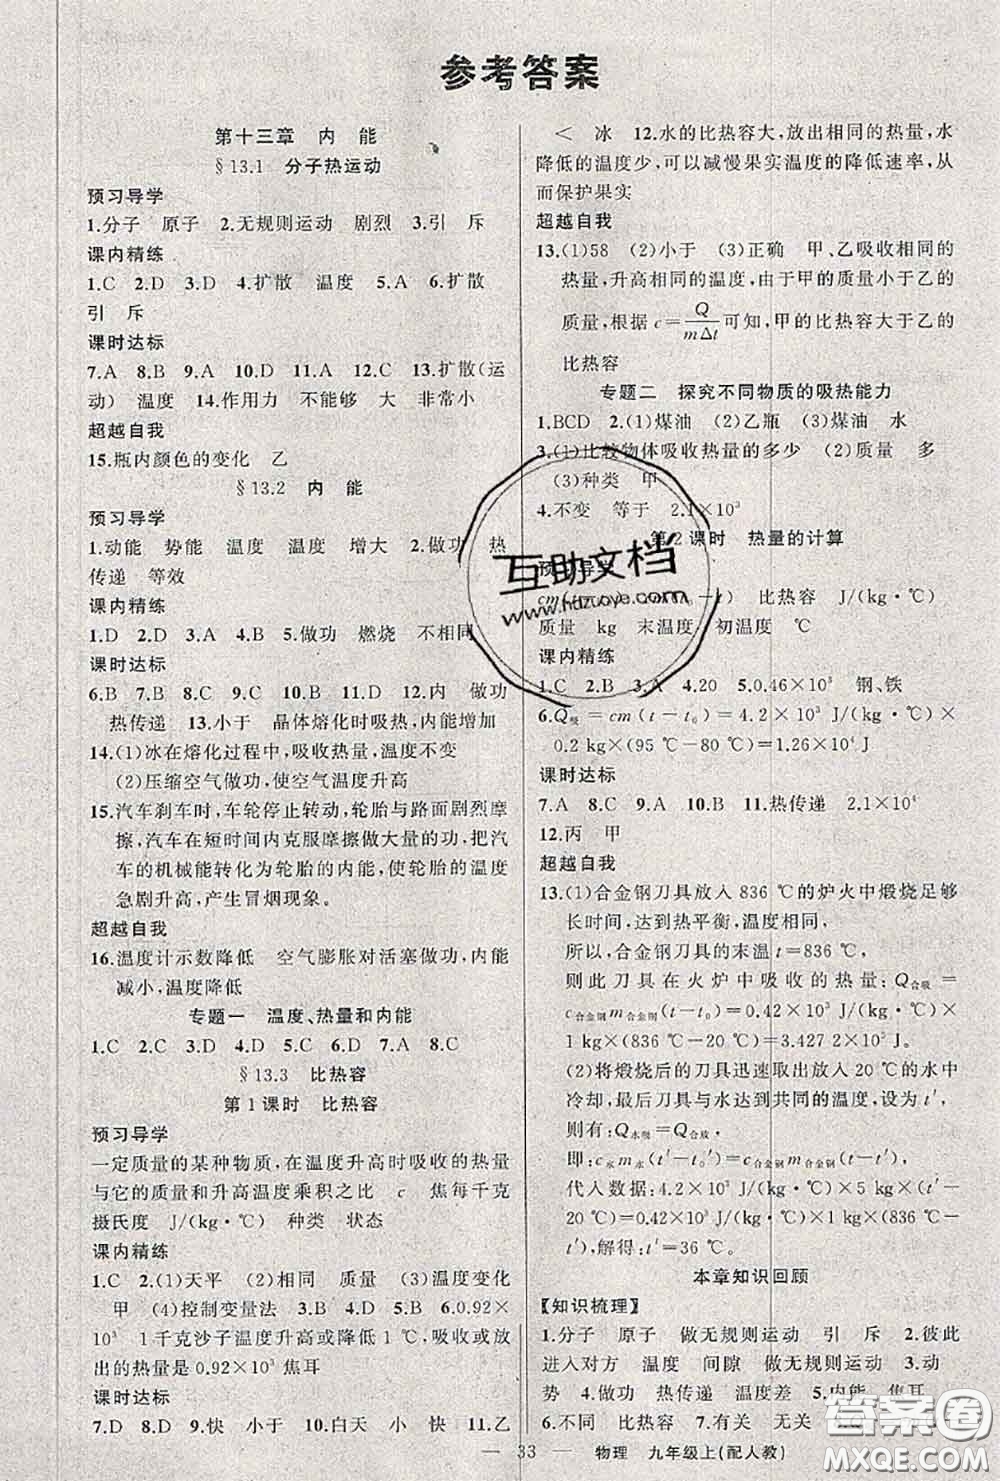 参考答案
第十三章　内　能
§13.1　分子热运动
预习导学
1.分子　原子　2.无规则运动　剧烈　3.引　斥
课内精练
1.C　2.D　3.D　4.扩散　温度　5.A　6.扩散
引　斥
课时达标
7.A　8.B　9.A　10.D　11.A　12.C　13.扩散(运
动)　温度　14.作用力　不能够　大　非常小
超越自我
15.瓶内颜色的变化　乙
§13.2　内　能
预习导学
1.动能　势能　温度　温度　增大　2.做功　热
传递　等效
课内精练
1.D　2.D　3.A　4.B　5.做功　燃烧　不相同
课时达标
6.B　7.B　8.C　9.C　10.B　11.C　12.内　做功
热传递　13.小于　晶体熔化时吸热,内能增加
14.(1)冰在熔化过程中,吸收热量,温度不变
(2)压缩空气做功,使空气温度升高
15.汽车刹车时,车轮停止转动,轮胎与路面剧烈摩
擦,汽车在短时间内克服摩擦做大量的功,把汽
车的机械能转化为轮胎的内能,使轮胎的温度
急剧升高,产生冒烟现象。
超越自我
16.温度计示数降低　空气膨胀对活塞做功,内能
减小,温度降低
专题一　温度、热量和内能
1.C　2.C　3.D　4.D　5.D　6.D　7.A　8.C
§13.3　比热容
第1课时　比热容
预习导学
一定质量的某种物质,在温度升高时吸收的热量
与它的质量和升高温度乘积之比　c　焦每千克
摄氏度　J/(kg·℃)　种类　状态
课内精练
1.C　2.(1)天平　(2)相同　质量　(3)温度变化
甲　(4)控制变量法　3.B　4.D　5.B　6.0.92×
10³　1千克沙子温度升高或降低1℃,吸收或放
出的热量是0.92×10³焦耳
课时达标
7.D　8.D　9.快　小于　10.白天　小　快　11.乙
＜　冰　12.水的比热容大,放出相同的热量,水
降低的温度少,可以减慢果实温度的降低速率,从
而保护果实
超越自我
13.(1)58　(2)小于　(3)正确　甲、乙吸收相同的
热量,升高相同的温度,由于甲的质量小于乙的
质量,根据c=Q/mΔt可知,甲的比热容大于乙的
比热容
专题二　探究不同物质的吸热能力
1.BCD　2.(1)煤油　(2)乙瓶　(3)煤油　水
3.(1)比较物体吸收热量的多少　(2)质量　多
(3)种类　甲
4.不变　等于　2.1×10³
第2课时　热量的计算
预习导学
cm(　t₀-t)　比热容　J/(kg·℃)
质量　kg　末温度　初温度　℃
课内精练
1.C　2.B　3.A　4.20　5.0.46×10³　钢、铁
6.Q吸=cm(t-t₀)=4.2×10³ J/(kg·℃)×
0.2 kg×(95 ℃-80 ℃)=1.26×10⁴ J
课时达标
7.A　8.C　9.A　10.B　11.热传递　2.1×10⁴
12.丙　甲
超越自我
13.(1)合金钢刀具放入836 ℃的炉火中煅烧足够
长时间,达到热平衡,温度相同,
所以,合金钢刀具的末温t=836 ℃,
则此刀具在火炉中吸收的热量:Q合吸=
c合金钢m合金钢(t-t₀)=0.42×10³ J/(kg·℃)×
1 kg×(836 ℃-20 ℃)=3.427 2×10⁵ J。
(2)将煅烧后的刀具迅速取出放入20 ℃的水中
冷却,最后刀具与水达到共同的温度,设为t′,
则有:Q水吸=Q合放,
即:c水m水(t′-t₀)=c合金钢m合金钢(t-t′),
代入数据:4.2×10³ J/(kg·℃)×5 kg×(t′-
20 ℃)=0.42×10³ J/(kg·℃)×1 kg×(836 ℃-
t′),解得:t′=36 ℃。
本章知识回顾
【知识梳理】
1.分子　原子　做无规则运动　引　斥　2.彼此
进入对方　温度　间隙　做无规则运动　3.动
势　4.做功　热传递　温度差　5.内能　焦耳
6.不同　比热容　7.有关　无关
互助文档
www.huzuoye.com
答案圈
MXQE.COM
— 33 —　物理　九年级上(配人教)